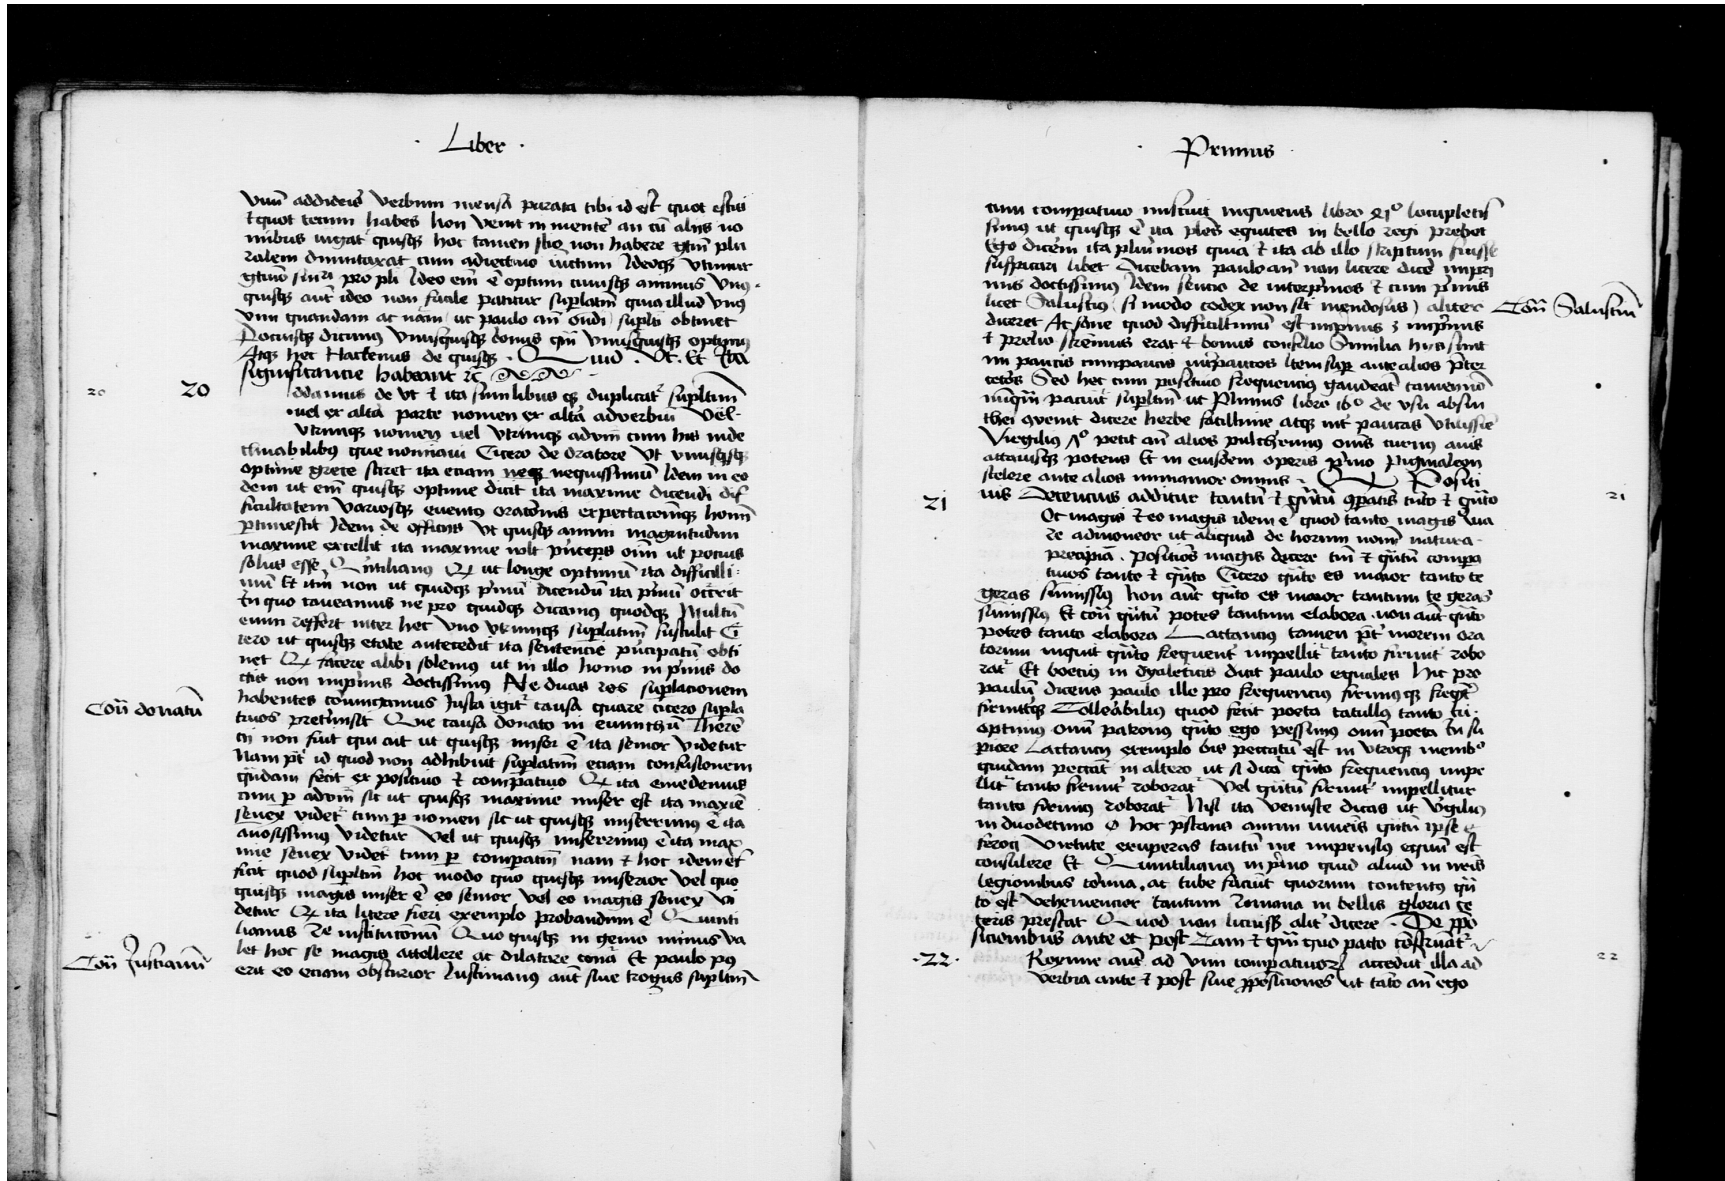 · Liber ·
vnū addideris verbum mensa parata tibi id est quot estis
& quot tecum habes Non venit in mentē an cū aliis no
minibus iūgat quisq̄ hoc tamen scio non habere gtm̄ plu
ralem dumtaxat cum adiectiuo iūctum Ideoq̄ vtimur
pro pli Ideo em̄ ē optum cuiusq̄ animus vnꝰ
quisq̄ aut ideo non facile pantur suplatm̄ quia illud vnꝰ
vim quandam ac nām ut paulo an̄ ondi suplti obtinet
Docuisq̄ dicimus vnusquisq̄ bonus vnusquisq̄ optimꝰ
Atq̄ hec Hactenus de quisq̄ · Quid · Ut · Et Ita
significantie habeant ⁊c̄
20 20 ddamus de vt & ita similibus q̄ duplicat̄ supltm̄
vel ex alta parte nomen ex alta adverbiū vel
vtrimq̄ nomen uel vtrimq̄ advm̄ cum his inde
clinabilibꝰ que nominaui Cicero de oratore vt vnusqsq̄
optime grece sciret ita eciam neq̄ nequissimū Idem in eo
dem ut em̄ quisq̄ optime dicit ita maxime dicendi dif
ficultatem variosq̄ euentꝰ oratōnis expectatōnemq̄ homī
ptimescit Idem de officiis vt quisq̄ animi magnitudini
maxime excellit ita maxime volt pn̄ceps oīm ut pocius
solus esse Quintilianꝰ Q ut longe optimū ita difficilli
mū Et itm̄ non ut quidq̄ p̄mū dicendū ita p̄mū occ̄rit
In quo caueamus ne pro quidq̄ dicamꝰ quodq̄ Multū
enim reffert inter hec vno vtrimq̄ suplatm̄ sustulit Ci
cero ut quisq̄ etate antecedit ita sentencie pn̄cipatū obti
net Q facere alibi solemus ut in illo homo in p̄mis do
ctus non inprimis doctissimꝰ Ne duas res suplacionem
habentes coniūgamus Iusta igit̄ causa quare cicero supla
tiuos pretimisit Que causa donato in eunuchū Theren
cii non fuit qui ait ut quisq̄ miser ē ita senior videtur
Nam p̄t id quod non adhibuit suplatm̄ eciam confusionem
q̄dam fecit ex positiuo & compatiuo Q ita emedemus
tum p advm̄ sic ut quisq̄ maxime miser est ita maxiē
senex videt̄ tum p nomen sic ut quisq̄ miserrimꝰ ē ita
annosissimꝰ videtur vel ut quisq̄ miserrimꝰ ē ita maxi
me senex videt̄ tum p compatm̄ nam & hoc idem ef
ficit quod supltm̄ hoc modo quo quisq̄ miserior vel quo
quisq̄ magis miser ē eo senior vel eo magis senex vi
detur Q ita licere fieri exemplo probandum ē Quinti
lianus De institutōnū Quo quisq̄ in genio minus va
let hoc se magis attollere ac dilatare cona Et paulo pꝰ
erit eo eciam obscurior Iustinianꝰ aut siue trogus supltm̄
Con̄ donatū
Con̄ Iustianū
· Primus ·
cum compatiuo miscuit inquiens libro locupletis
simꝰ ut quisq̄ ē ita ples equites in bello regi prebet
Ego dicem ita plurimos quia & ita ab illo scriptum fuisse
suspicari libet Dicebam paulo an̄ non licere dice inpri
mis doctissimꝰ Idem sencio de interp̄mos & cum p̄mis
licet Salustiꝰ (si modo codex non sit mendosus) aliter
diceret At sane quod difficillimū est inprimis inp̄mis
& prelio strenuus erat & bonus consilio Similia hiis sunt
in paucis cumpaucis int̄paucos Item sup ante alios p̄ter
ceteros Sed hec cum positiuo frequencius gaudeāt tamen nō
nunq̄m paciūt supltm̄ ut Plinius libro de vsu absin
thei 9uenit dicere herbe facillime atq̄ int̄ paucas vtilissiē
Virgilius petit an̄ alios pulcherimꝰ om̄s turnus auis
attauisq̄ potens Et in eiusdem operis p̄mo Pigmaleon
scelere ante alios immanior omnis · Positi
21 21 uis Decencius additur tantū & q̄ntū 9patis tāto & q̄nto
Et magis & eo magis idem ē quod tanto magis qua
re admoneor ut aliquid de horum nom̄ natura
precipiā · positiōs magis dicere tm̄ & q̄ntū compa
tiuos tanto & q̄nto Cicero q̄nto es maior tanto te
geras sūmissiꝰ Non aut q̄nto es maior tantum te geras
sūmissiꝰ Et con̄ q̄ntū potes tantum elabora non aut q̄nto
potes tanto elabora Lactancius tamen p̄t morem ora
torum inquit q̄nto frequent̄ impellit̄ tanto firmit̄ robo
rat̄ Et boeciꝰ in dyaleticis dicit paulo equales Hic pro
paulū dicens paulo ille pro frequencius firmiꝰq̄
firmit̄q̄ Tolleabilius quod fecit poeta catullꝰ tanto tu
optimꝰ om̄ patronꝰ q̄nto ego pessimꝰ om̄ poeta In su
piore Lactancii exemplo bis peccatū est in vtroq̄ memb°
quidam peccāt in altero ut si dica q̄nto frequencius inpe
llit̄ tanto firmit̄ roborat̄ Vel q̄ntū firmit̄ impellitur
tanto firmiꝰ roborat̄ Nisi ita veniste dicas ut v̄giliꝰ
in duodecimo O hoc p̄stans animi iuuenis q̄ntū ipse
feroci virtute exuperas tantū me inpensiꝰ equū est
consulere Et Quintilianus in p̄mo quid aliud in nr̄is
legionibus cornua · ac tube faciūt quorum contentꝰ q̄n
to est vehemencior tantum Romana in bellis gloria ce
teris prestat Quod non licuiss alit̄ dicere · De ppo
sicionibus ante et post Tam & q̄m quo pacto cōstruāt̄
·22· 22 Roxime aut̄ ad vim compatiuor̄ accedūt illa ad
verbia ante & post siue pposiciones ut tāto an̄ ego
Con̄ Salustiū